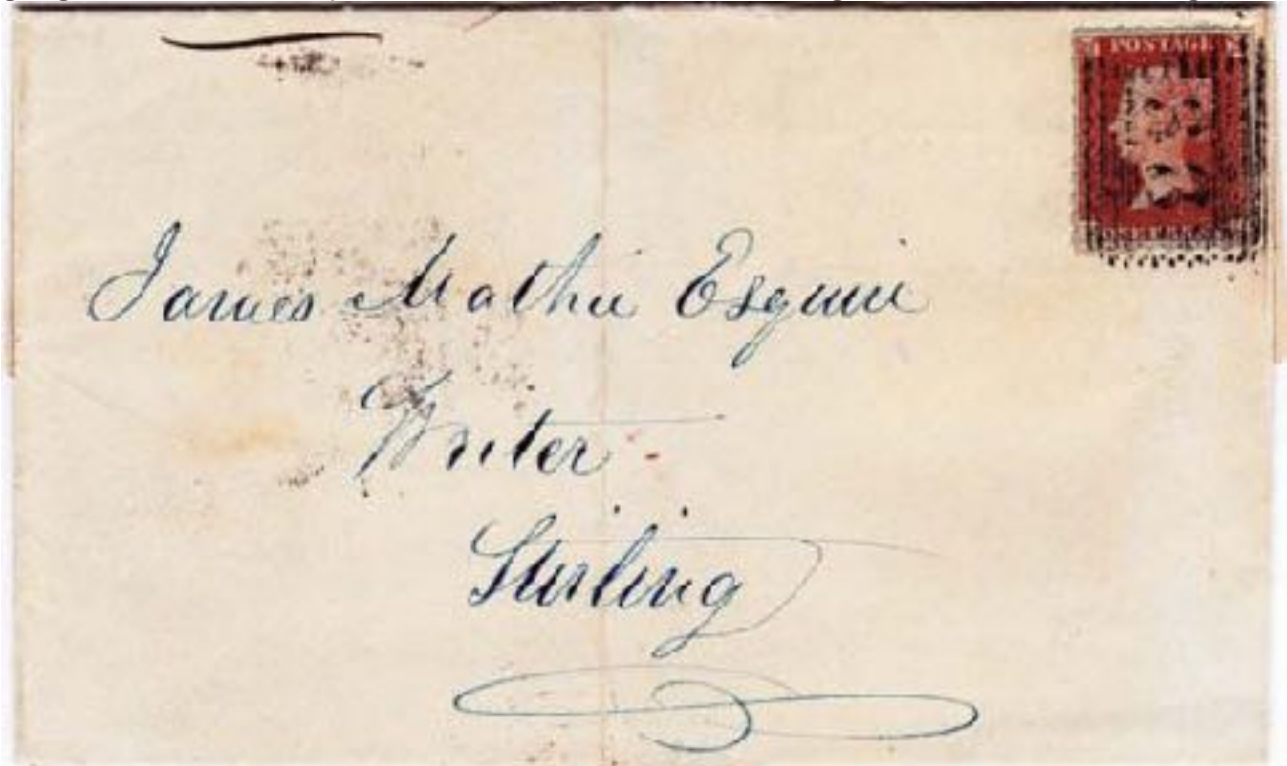 POSTAGE
James Mathie Esquire
Writer
Stirling